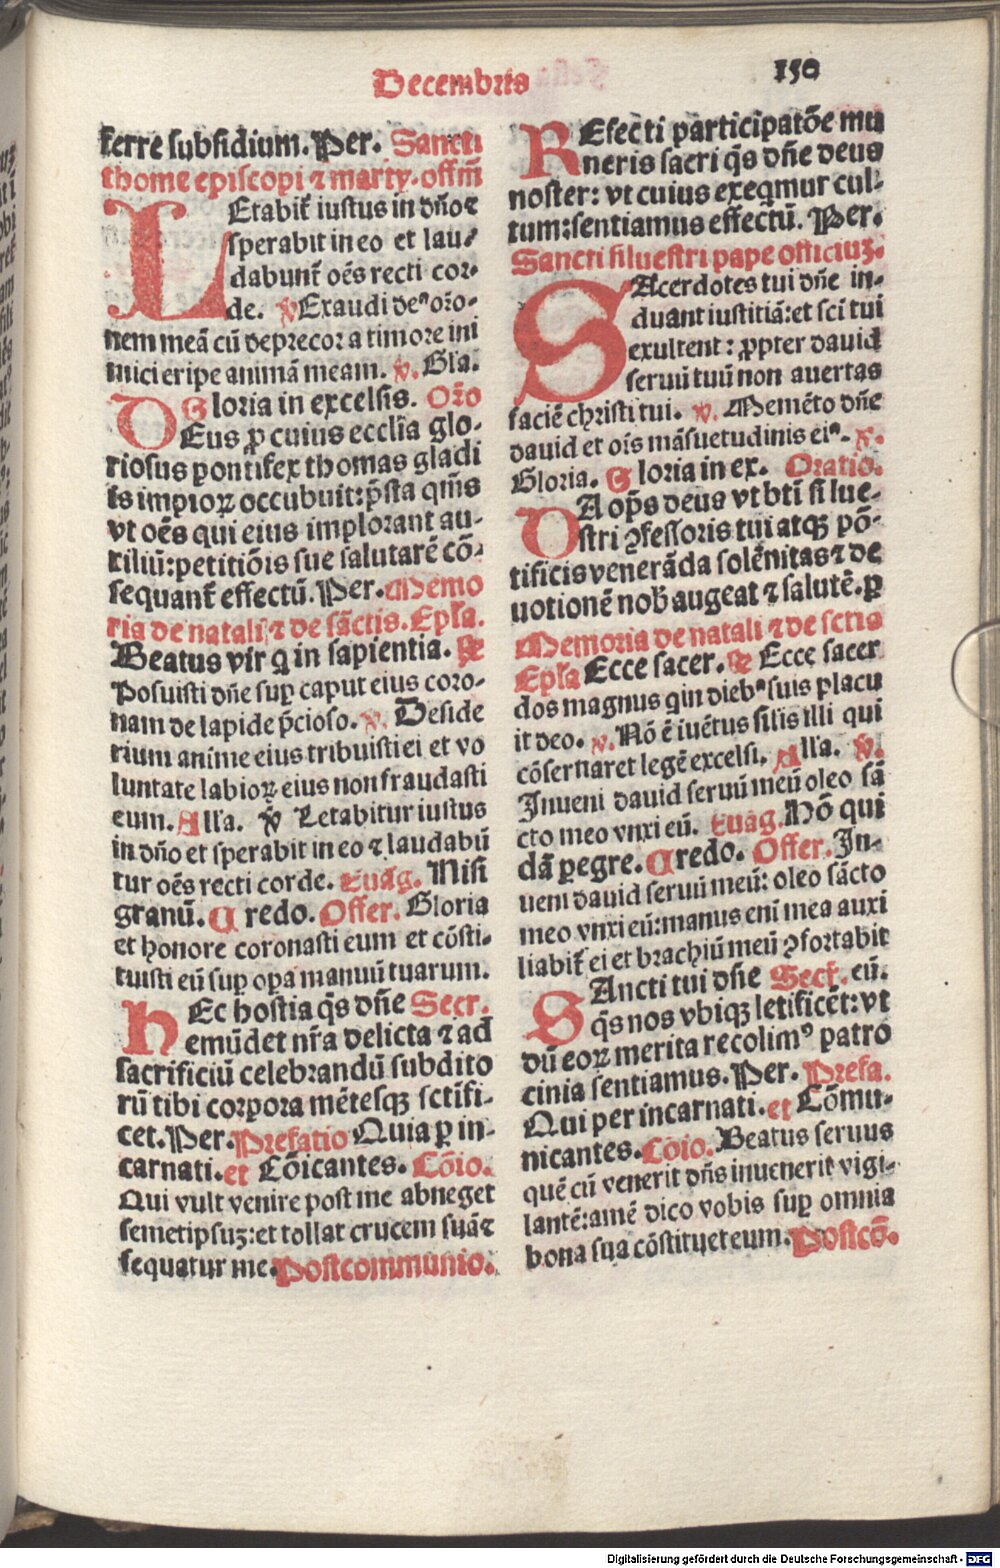 Decembris
150
ferre subsidium. Per. Sancti
thome episcopi ⁊ marty. offm̄
LEtabit̄ iustus in dn̄o ⁊
sperabit in eo et lau-
dabunt̄ oēs recti cor-
de. ℣ Exaudi deꝰ or̄o-
nem meā cū deprecor a timore ini
mici eripe animā meam. ℣. Gl̄a.
Gloria in excelsis. Or̄o
DEus ꝓ cuius eccl̄ia glo-
riosus pontifex thomas gladi
is impioꝝ occubuit: p̄sta qm̄s
vt oēs qui eius implorant au-
xiliū: petitiōis sue salutarē cō-
sequant̄ effectū. Per. Memo
ria de natali ⁊ de sāctis. Ep̄la.
Beatus vir q in sapientia. Gr
Posuisti dn̄e suꝑ caput eius coro-
nam de lapide p̄cioso. ℣. Deside
rium anime eius tribuisti ei et vo
luntate labioꝝ eius non fraudasti
eum. All'a. ℣ Letabitur iustus
in dn̄o et sperabit in eo ⁊ laudabū
tur oēs recti corde. Euāg. Nisi
granū. Credo. Offer. Gloria
et honore coronasti eum et cōsti-
tuisti eū suꝑ oꝑa manuū tuarum.
HEc hostia q̄s dn̄e Secr.
emūdet nr̄a delicta ⁊ ad
sacrificiū celebrandū subdito
rū tibi corpora mētesqꝫ sctīfi-
cet. Per. Prefatio Quia ꝑ in-
carnati. et Cōicantes. Cōio.
Qui vult venire post me abneget
semetipsuꝫ: et tollat crucem suā ⁊
sequatur me. Postcommunio.
REfecti participatōe mu
neris sacri q̄s dn̄e deus
noster: vt cuius exeqmur cul-
tum: sentiamus effectū. Per.
Sancti siluestri pape officiuꝫ.
SAcerdotes tui dn̄e in-
duant iustitiā: et sci tui
exultent: ꝓpter dauid
seruū tuū non auertas
faciē christi tui. ℣. Memēto dn̄e
dauid et ois māsuetudinis eiꝰ. ℣.
Gloria. Gloria in ex. Oratio.
DA op̄s deus vt bt̄i silue-
stri ꝯfessoris tui atqꝫ pō-
tificis venerāda solēnitas ⁊ de
uotionē nob̄ augeat ⁊ salutē. ꝑ
Memoria de natali ⁊ de sctis
Ep̄la Ecce sacer. Gr Ecce sacer
dos magnus q in diebꝰ suis placu
it deo. ℣. Nō ē iuētus silis illi qui
cōseruaret legē excelsi. All'a. ℣.
Inueni dauid seruū meū oleo sā
cto meo vnxi eū. Euāg. Hō qui
dā ꝑegre. Credo. Offer. In-
ueni dauid seruū meū: oleo sācto
meo vnxi eū: manus eni mea auxi
liabit̄ ei et brachiū meū ꝯfortabit
SAncti tui dn̄e Secr̄. eū.
q̄s nos vbiqꝫ letificēt: vt
dū eoꝝ merita recolimꝰ patro
cinia sentiamus. Per. Prefa.
Qui per incarnati. et Cōmu-
nicantes. Cōio. Beatus seruus
quē cū venerit dn̄s inuenerit vigi-
lantē: amē dico vobis suꝑ omnia
bona sua cōstituet eum. Postcō.
Digitalisierung gefördert durch die Deutsche Forschungsgemeinschaft - DFG